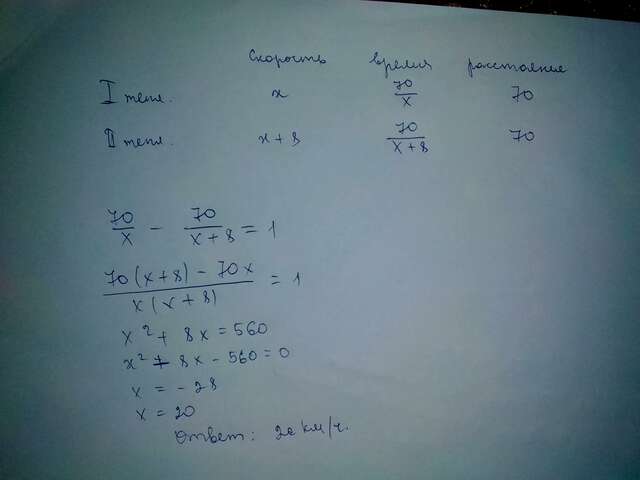 скорость время расстояние
I тепл. x 70/x 70
II тепл. x+8 70/x+8 70
70/x - 70/x+8 = 1
70(x+8) - 70x/x(x+8) = 1
x² + 8x = 560
x² + 8x - 560 = 0
x = -28
x = 20
Ответ: 20 км/ч.